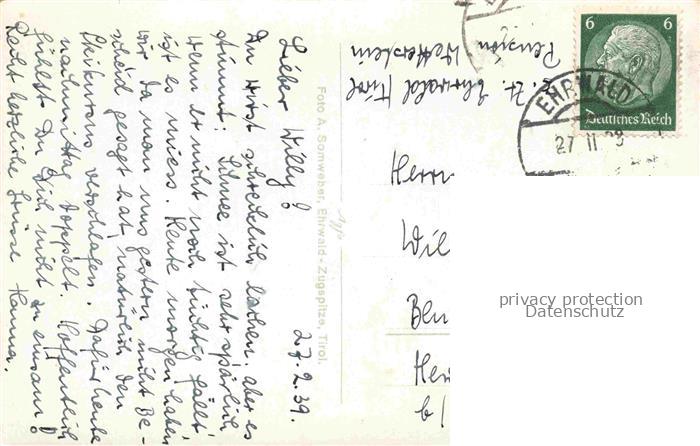 27.2.39.
Lieber Willy!
Du wirst schrecklich lachen, aber es
stimmt: Schnee ist sehr spärlich,
wenn er nicht noch tüchtig fällt,
ist es mies. Heute morgen haben
wir da man uns gestern nicht Be-
scheid gesagt hat, natürlich den
Skikursus verschlafen. Dafür heute
nachmittag doppelt. Hoffentlich
fühlst Du Dich nicht zu einsam!
Recht herzliche Grüsse Hanna.
Foto A. Somweber, Ehrwald-Zugspitze, Tirol.
z. Zt. Ehrwald/Tirol
Pension Wetterstein
6 6
Deutsches Reich
EHRWALD
27 II
Herrn
Wil
privacy protection
Datenschutz